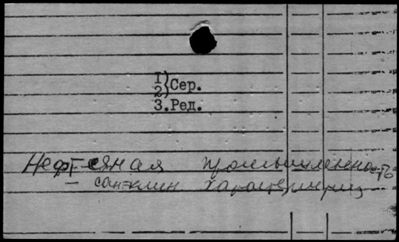 1)
2) Сер.
3. Ред.
Нефтяная промышленность
— сан-клин характеристик